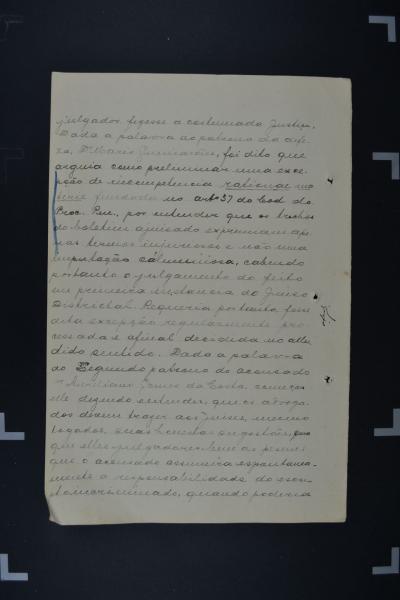 julgador fizesse a costumada Justiça.
Dada a palavra ao patrono da defe-
za, Dr Mario Guimarães, foi dito que
arguia como preliminar uma exce-
pção de incompetencia rationae ma
teriae fundada no artº 37 do Cod. do
Proc. Pen., por entender que os trechos
do boletim ajuisado exprimiam ape-
nas termos injuriosos e não uma
imputação calumniosa, cabendo
portanto o julgamento do feito
em primeira instancia ao Juiso
Districtal. Requeria portanto fosse
dita excepção regularmente pro-
cessada e afinal decidida no allu
dido sentido. Dada a palavra
ao Segundo patrono do accusado
Gomes da Costa, começou
elle dizendo entender, que os advoga-
dos devem trazer aos Juises, mesmo
togados, suas suggestões, para
que elles julgadores
que o accusado assumira espontanea-
mente a responsabilidade do escri-
pto incriminado, quando poderia